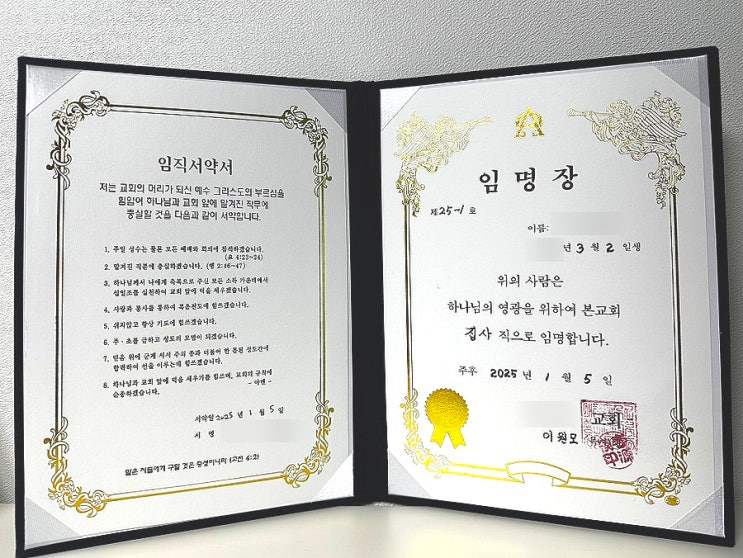 임직서약서
저는 교회의 머리가 되신 예수 그리스도의 부르심을
힘입어 하나님과 교회 앞에 맡겨진 직무에
충실할 것을 다음과 같이 서약합니다.
1. 주일 성수는 물론 모든 예배와 회의에 참석하겠습니다.
(요 4:23~24)
2. 맡겨진 직분에 충실하겠습니다. (행 2:46~47)
3. 하나님께서 나에게 축복으로 주신 모든 소득 가운데에서
십일조를 실천하여 교회 앞에 덕을 세우겠습니다.
4. 사랑과 봉사를 통하여 복음전도에 힘쓰겠습니다.
5. 쉬지않고 항상 기도에 힘쓰겠습니다.
6. 주·초를 금하고 성도의 모범이 되겠습니다.
7. 믿음 위에 굳게 서서 주의 종과 더불어 한 몸된 성도간에
협력하여 선을 이루는데 힘쓰겠습니다.
8. 하나님과 교회 앞에 덕을 세우기를 힘쓰며, 교회의 규칙에
순종하겠습니다. - 아멘 -
서약일 2025 년 1 월 5 일
서 명
맡은 자들에게 구할 것은 충성이니라 (고전 4:2)
임명장
제 25-1 호
이름:
년 3 월 2 일생
위의 사람은
하나님의 영광을 위하여 본교회
집사 직으로 임명합니다.
주후 2025 년 1 월 5 일
교회
이원모